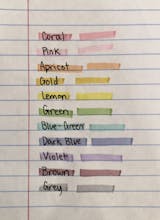 Coral
Pink
Apricot
Gold
Lemon
Green
Blue-Green
Dark Blue
Violet
Brown
Grey